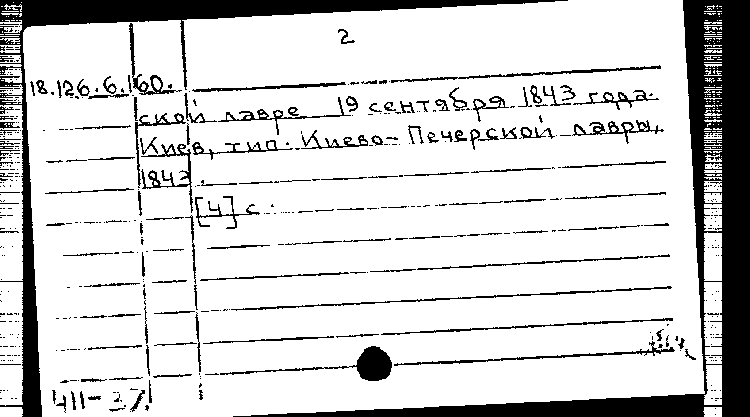 2
18.126.6.160.
ской лавре 19 сентября 1843 года.
Киев, тип. Киево-Печерской лавры,
1843.
[4] с.
411-37.